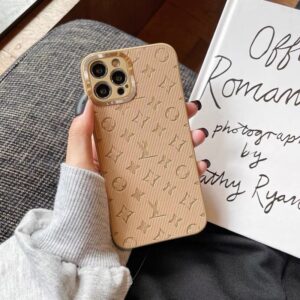 Offi
Romanc
photograp
by
athy Ryan